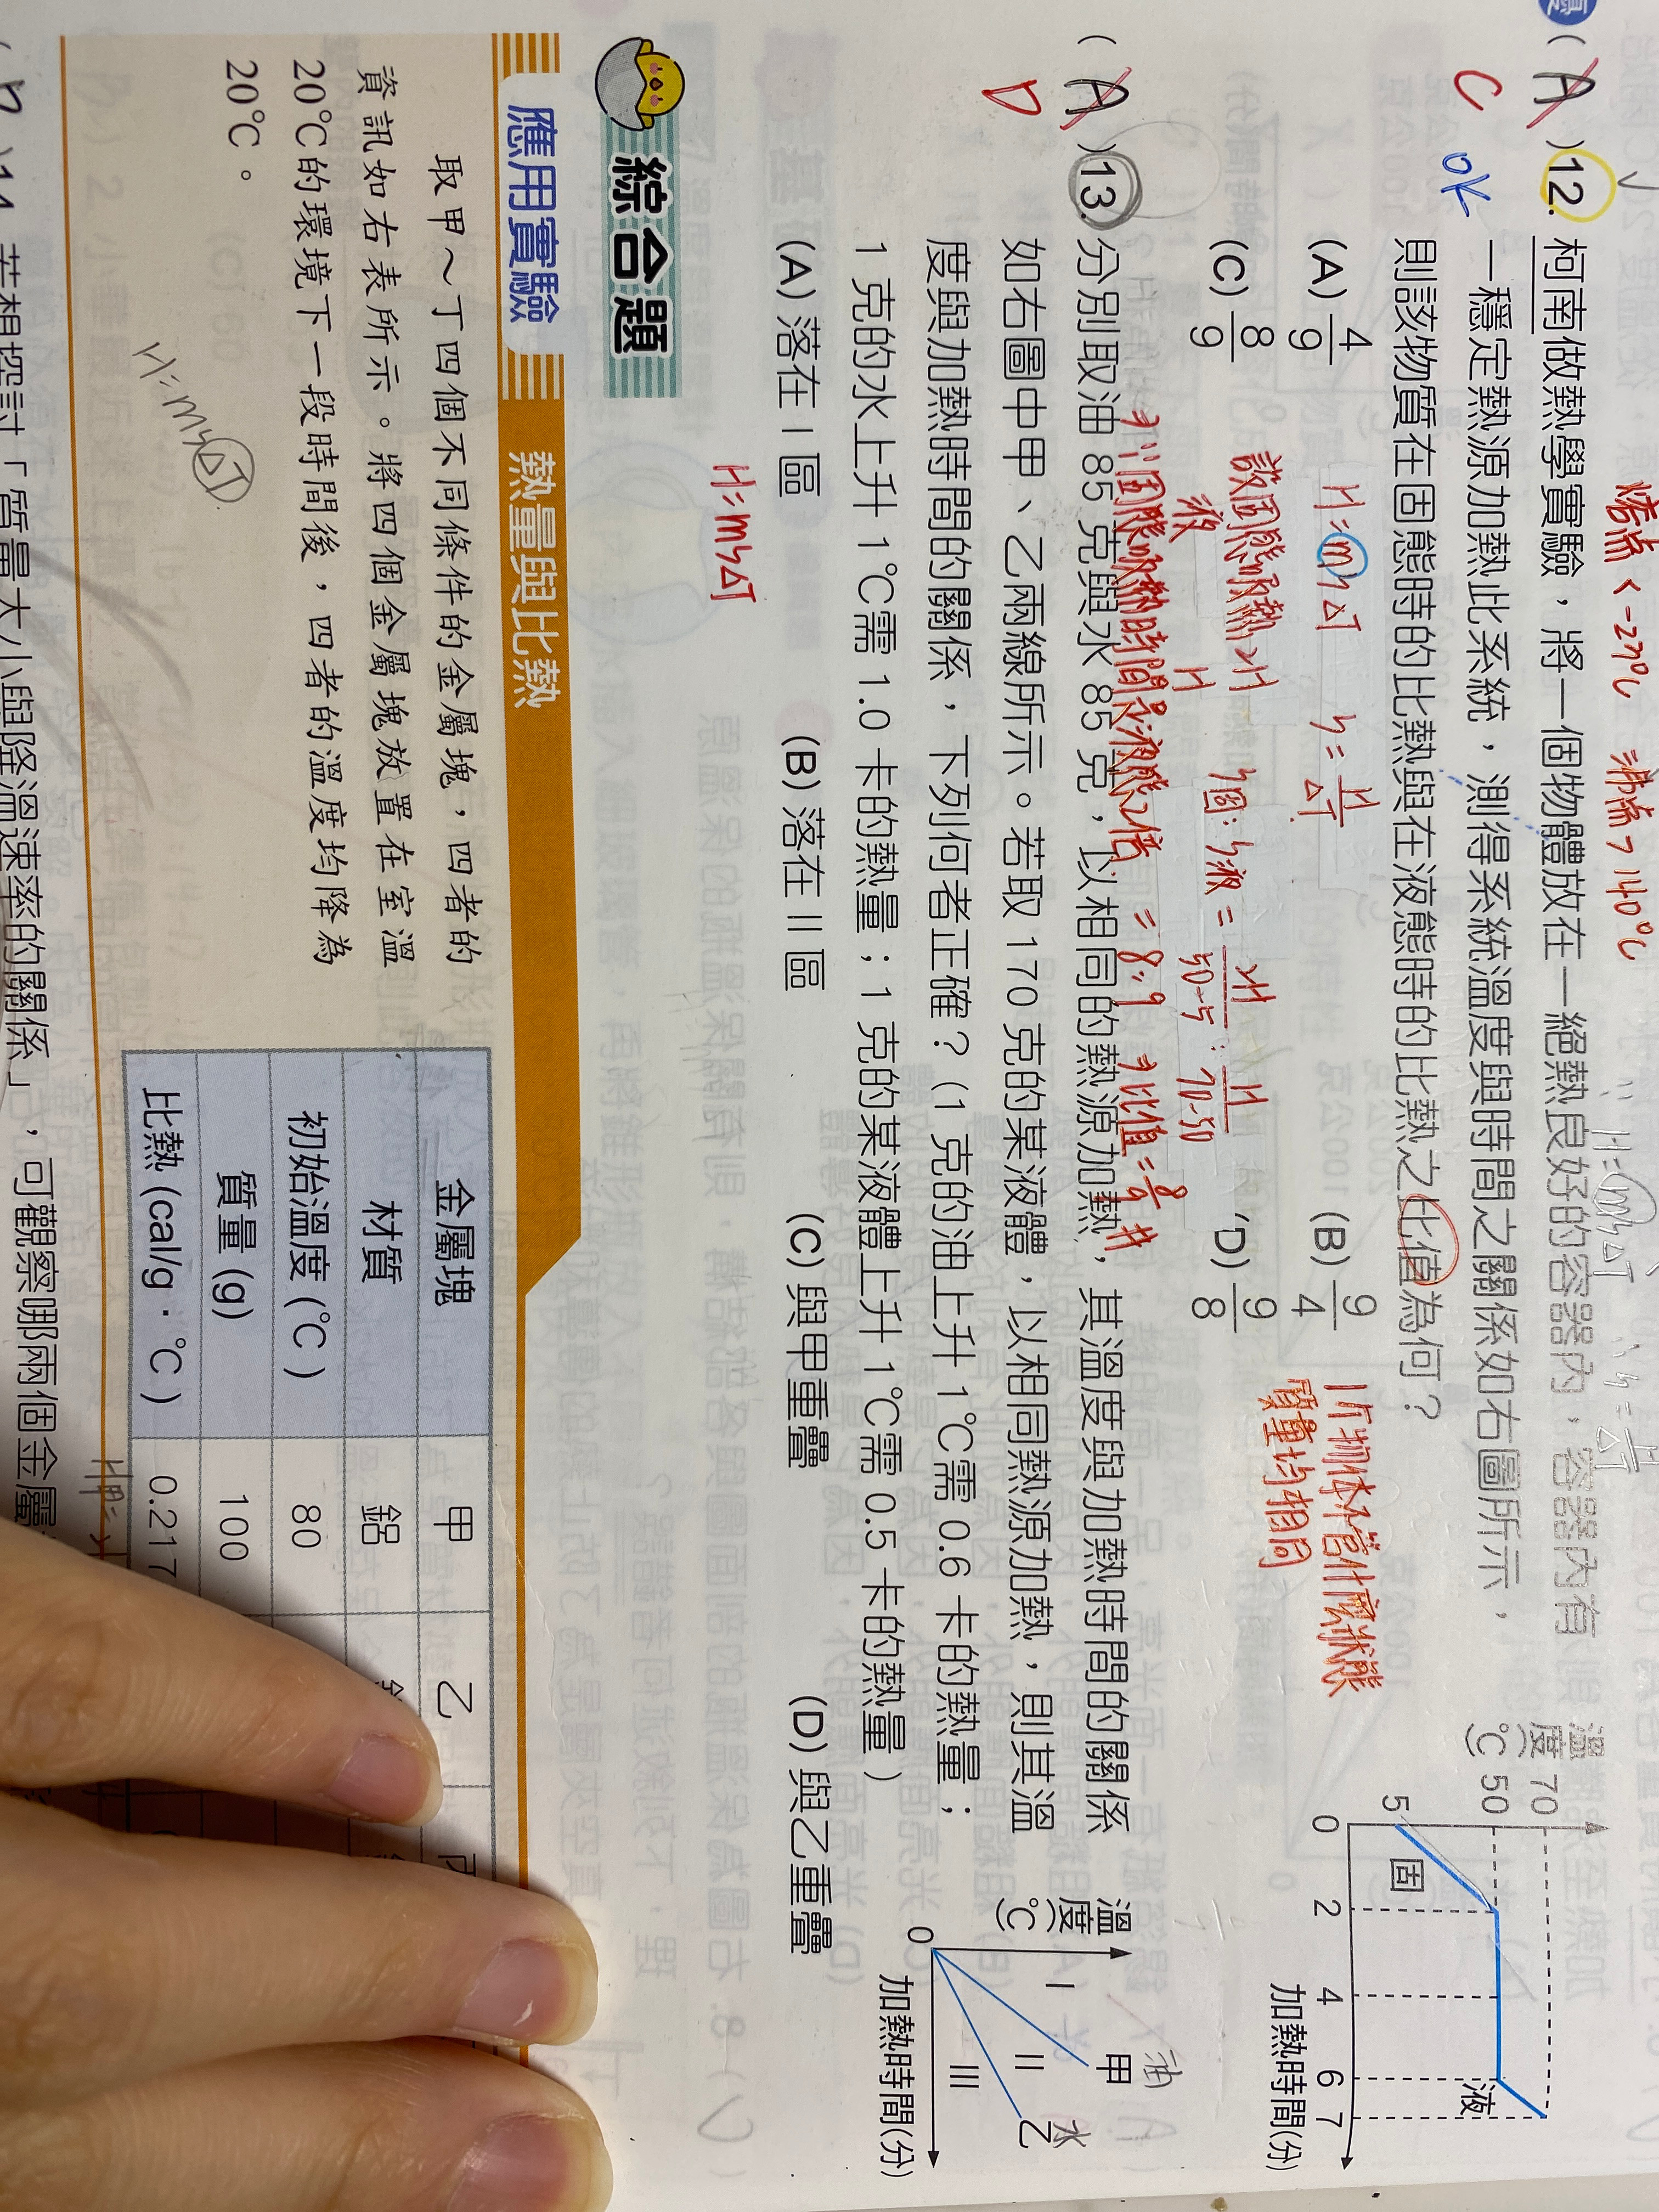 熔点<-27℃ 沸点>140℃
(A)12. 柯南做熱學實驗，將一個物體放在一絕熱良好的容器內，容器內有
C OK
一穩定熱源加熱此系統，測得系統溫度與時間之關係如右圖所示，
則該物質在固態時的比熱與在液態時的比熱之比值為何？
(A) 4/9
(B) 9/4
(C) 8/9
(D) 9/8
H=ms△T
S=H/△T
設固態吸熱2H
液 H
S固:S液=2H/50-5:H/70-50
=8:9
⇒比值=8/9 #
1斤物体不管什麼狀態
質量均相同
溫度(℃)
70
50
5
0
2
4
6
7
固
液
加熱時間(分)
(A)13. 分別取油 85 克與水 85 克，以相同的熱源加熱，其溫度與加熱時間的關係
D
如右圖中甲、乙兩線所示。若取 170 克的某液體，以相同熱源加熱，則其溫
度與加熱時間的關係，下列何者正確？(1 克的油上升 1℃需 0.6 卡的熱量；
1 克的水上升 1℃需 1.0 卡的熱量；1 克的某液體上升 1℃需 0.5 卡的熱量)
(A) 落在 I 區
(B) 落在 II 區
(C) 與甲重疊
(D) 與乙重疊
H=ms△T
溫度(℃)
I
II
III
甲 油
乙 水
0
加熱時間(分)
綜合題
應用實驗 熱量與比熱
取甲～丁四個不同條件的金屬塊，四者的
資訊如右表所示。將四個金屬塊放置在室溫
20℃的環境下一段時間後，四者的溫度均降為
20℃。
H=ms△T
金屬塊 甲 乙
材質 鋁
初始溫度 (℃) 80
質量 (g) 100
比熱 (cal/g・℃) 0.217
14. 若想探討「質量大小與降溫速率的關係」，可觀察哪兩個金屬